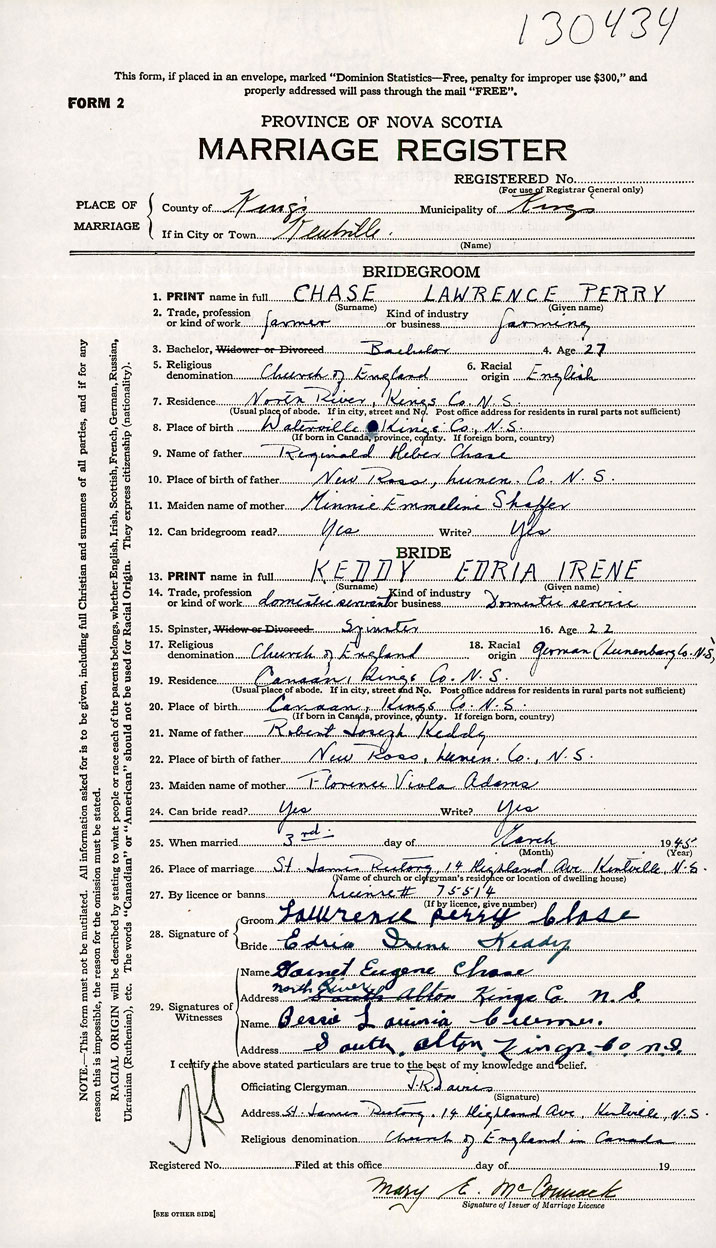 130434
This form, if placed in an envelope, marked "Dominion Statistics—Free, penalty for improper use $300," and
properly addressed will pass through the mail "FREE".
FORM 2
PROVINCE OF NOVA SCOTIA
MARRIAGE REGISTER
REGISTERED No.
(For use of Registrar General only)
PLACE OF MARRIAGE
County of Kings Municipality of Kings
If in City or Town Kentville.
(Name)
BRIDEGROOM
1. PRINT name in full CHASE LAWRENCE PERRY
(Surname) (Given name)
2. Trade, profession or kind of work farmer Kind of industry or business farming
3. Bachelor, Widower or Divorced Bachelor 4. Age 27
5. Religious denomination Church of England 6. Racial origin English
7. Residence North River, Kings Co. N.S.
(Usual place of abode. If in city, street and No. Post office address for residents in rural parts not sufficient)
8. Place of birth Waterville Kings Co., N.S.
(If born in Canada, province, county. If foreign born, country)
9. Name of father Reginald Heber Chase
10. Place of birth of father New Ross, Lunen. Co. N.S.
11. Maiden name of mother Minnie Emmeline Shaffer
12. Can bridegroom read? Yes Write? Yes
BRIDE
13. PRINT name in full KEDDY EDRIA IRENE
(Surname) (Given name)
14. Trade, profession or kind of work domestic servant Kind of industry or business Domestic service
15. Spinster, Widow or Divorced Spinster 16. Age 22
17. Religious denomination Church of England 18. Racial origin German (Lunenburg Co. N.S.)
19. Residence Canaan, Kings Co. N.S.
(Usual place of abode. If in city, street and No. Post office address for residents in rural parts not sufficient)
20. Place of birth Canaan, Kings Co. N.S.
(If born in Canada, province, county. If foreign born, country)
21. Name of father Robert Joseph Keddy
22. Place of birth of father New Ross, Lunen. Co., N.S.
23. Maiden name of mother Florence Viola Adams
24. Can bride read? Yes Write? Yes
25. When married 3rd day of March 1945
(Month) (Year)
26. Place of marriage St. James Rectory, 14 Highland Ave Kentville, N.S.
(Name of church or clergyman's residence or location of dwelling house)
27. By licence or banns License # 75514
(If by licence, give number)
28. Signature of
Groom Lawrence perry Chase
Bride Edria Irene Keddy
29. Signatures of Witnesses
Name Garnet Eugene Chase
north River
Address South Alton Kings Co. N.S.
Name Bessie
Address South, Alton, Kings. Co N.S.
I certify the above stated particulars are true to the best of my knowledge and belief.
Officiating Clergyman J.R. Davies
(Signature)
Address St. James Rectory, 14 Highland Ave, Kentville, N.S.
Religious denomination Church of England in Canada
Registered No. Filed at this office day of 19
Mary E. McCormack
Signature of Issuer of Marriage Licence
[SEE OTHER SIDE]
NOTE.—This form must not be mutilated. All information asked for is to be given, including full Christian and surnames of all parties, and if for any
reason this is impossible, the reason for the omission must be stated.
RACIAL ORIGIN will be described by stating to what people or race each of the parents belongs, whether English, Irish, Scottish, French, German, Russian,
Ukrainian (Ruthenian), etc. The words "Canadian" or "American" should not be used for Racial Origin. They express citizenship (nationality).